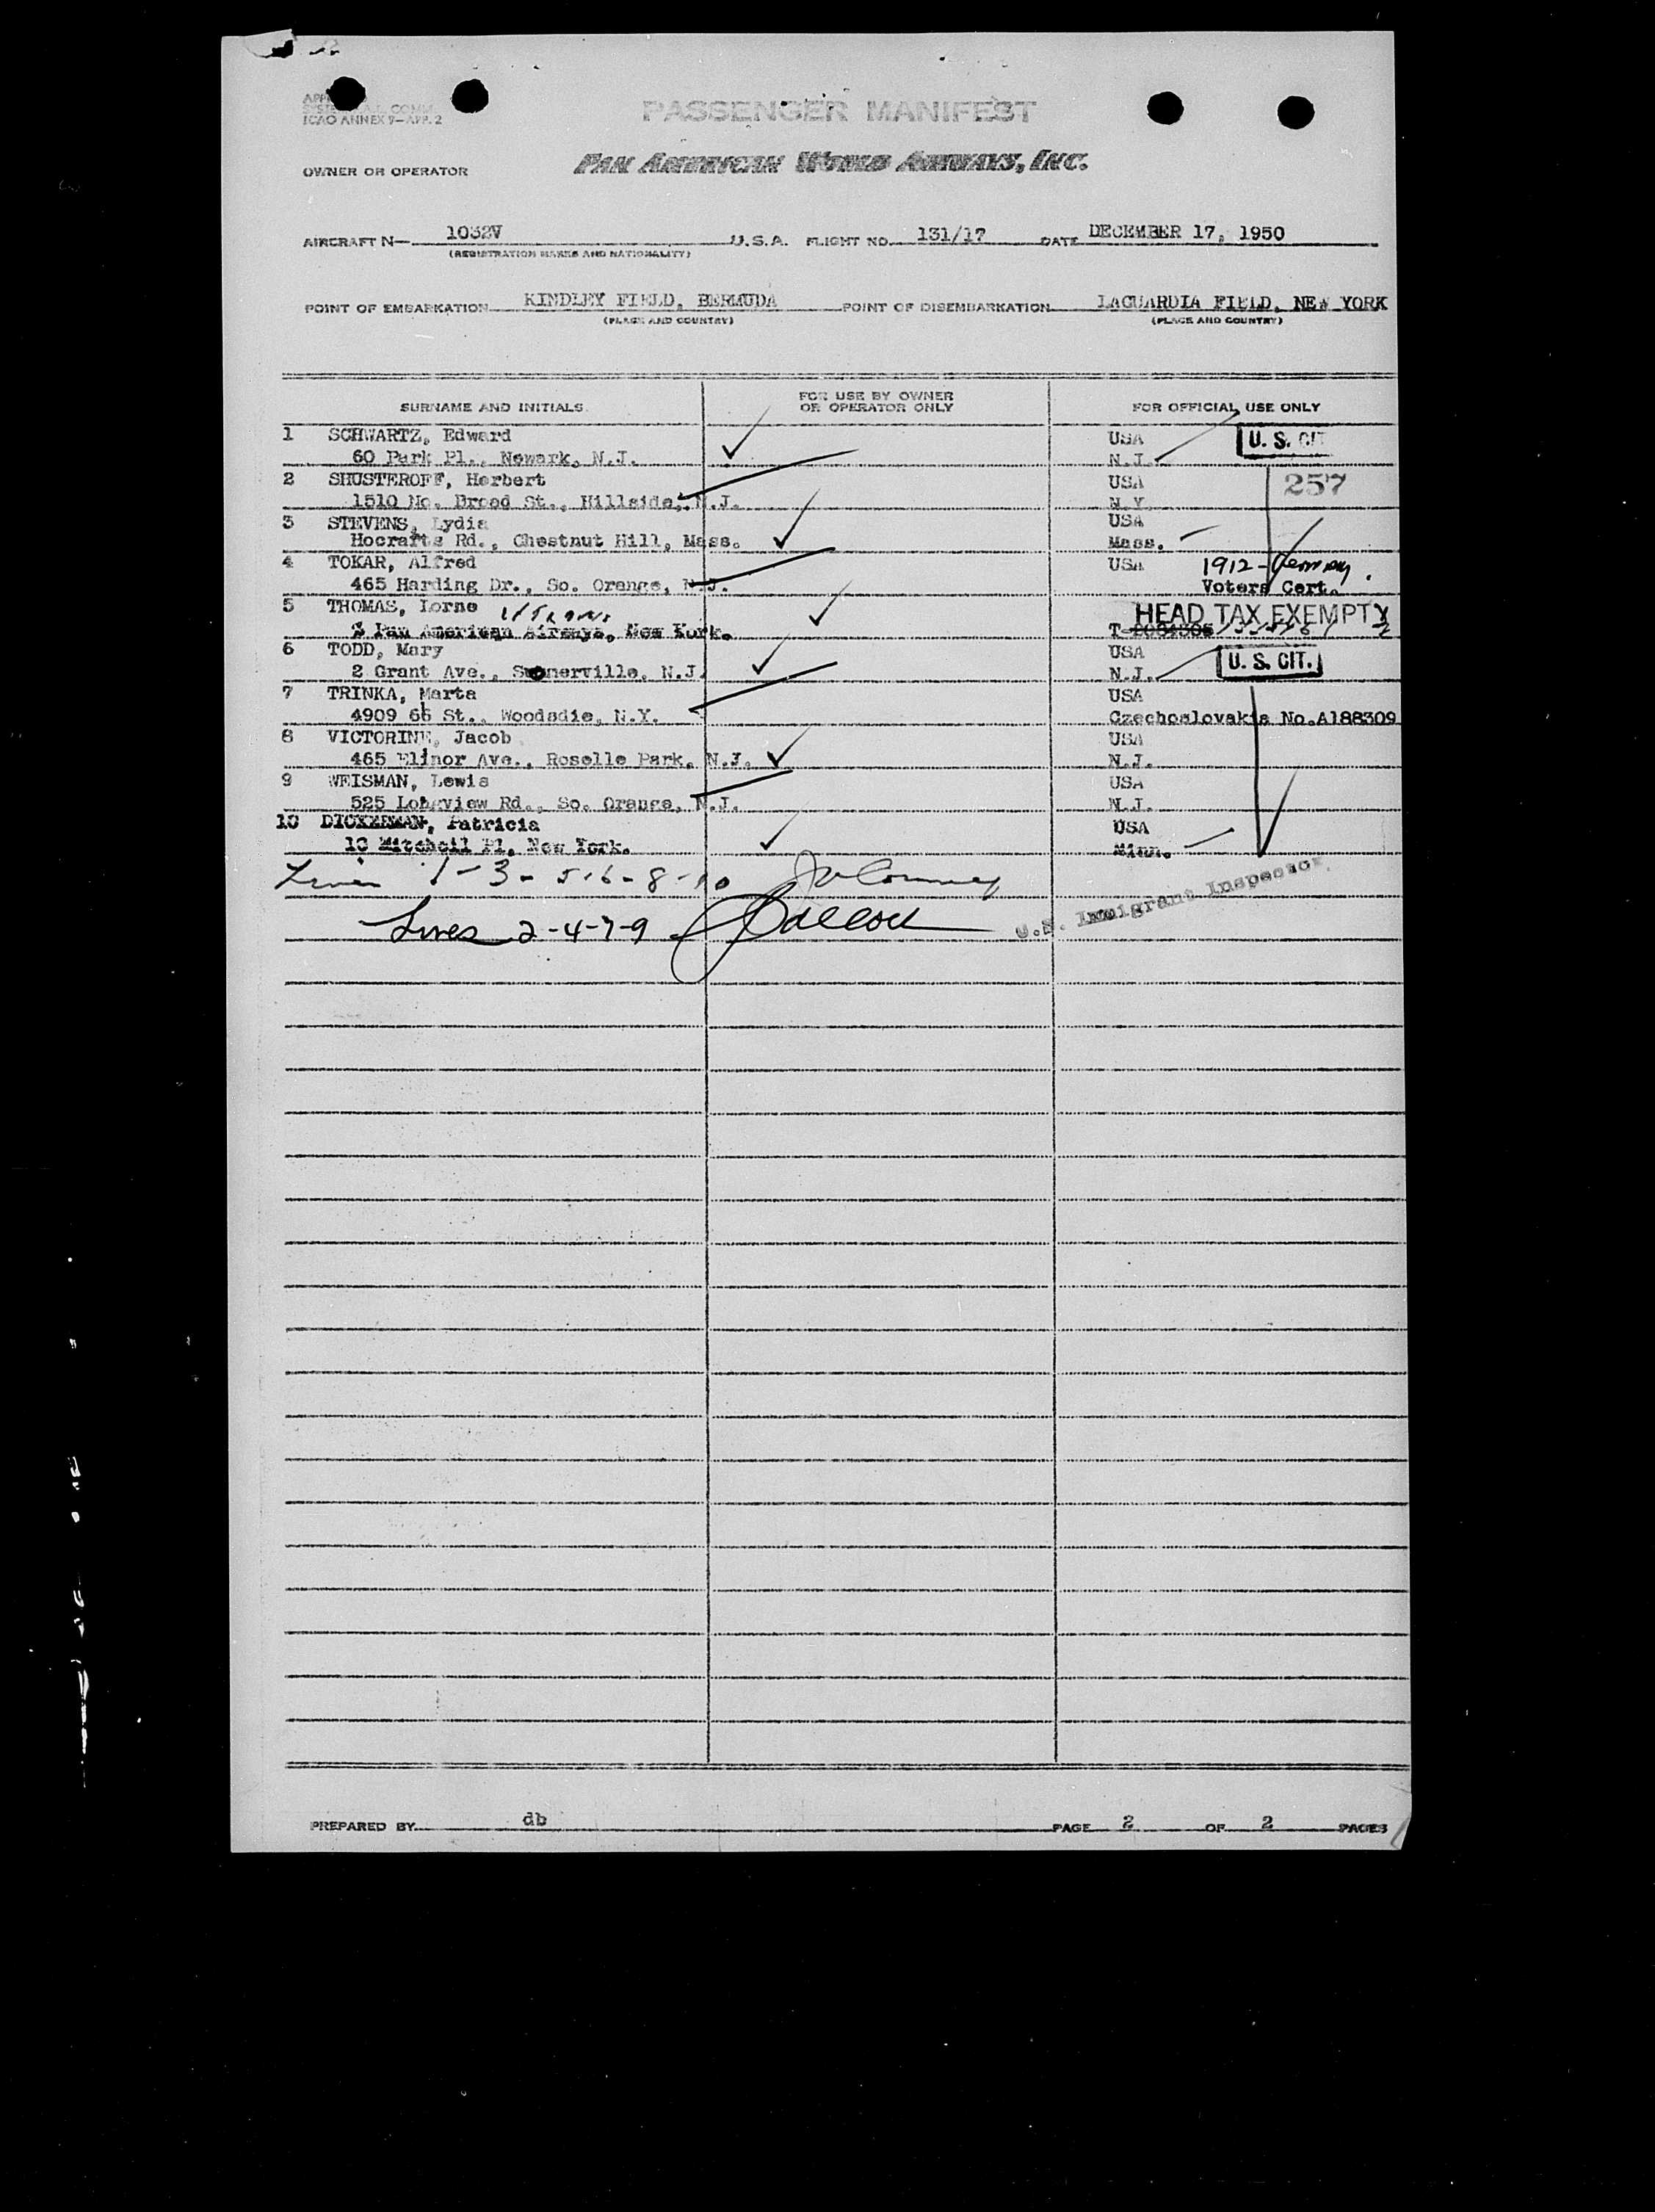 ICAO ANNEX 9—APP. 2
PASSENGER MANIFEST
OWNER OR OPERATOR
PAN AMERICAN WORLD AIRWAYS, INC.
AIRCRAFT N— 1032V U.S.A. FLIGHT NO. 131/17 DATE DECEMBER 17, 1950
(REGISTRATION MARKS AND NATIONALITY)
POINT OF EMBARKATION KINDLEY FIELD, BERMUDA POINT OF DISEMBARKATION LAGUARDIA FIELD, NEW YORK
(PLACE AND COUNTRY) (PLACE AND COUNTRY)
SURNAME AND INITIALS
FOR USE BY OWNER
OR OPERATOR ONLY
FOR OFFICIAL USE ONLY
1 SCHWARTZ, Edward USA U. S. CIT
60 Park Pl., Newark, N.J. N.J.
2 SHUSTEROFF, Herbert USA 257
1510 No. Broad St., Hillside, N.J. N.Y.
3 STEVENS, Lydia USA
Rd., Chestnut Hill, Mass. Mass.
4 TOKAR, Alfred USA 1912-Germany
465 Harding Dr., So. Orange, N.J. Voters Cert.
5 THOMAS, Lorne HEAD TAX EXEMPT
% Pan American Airways, New York.
6 TODD, Mary USA U. S. CIT.
2 Grant Ave., Somerville, N.J. N.J.
7 TRINKA, Marta USA
4909 66 St., Woodsdie, N.Y. Czechoslovakia No.A188309
8 VICTORINE, Jacob USA
465 Elinor Ave., Roselle Park, N.J. N.J.
9 WEISMAN, Lewis USA
525 Rd., So. Orange, N.J. N.J.
10 DICKERMAN, Patricia USA
10 Mitchell Pl, New York. Minn.
Lines 1-3-5-6-8-10
Lines 2-4-7-9
U.S. Immigrant Inspector
PREPARED BY db PAGE 2 OF 2 PAGES